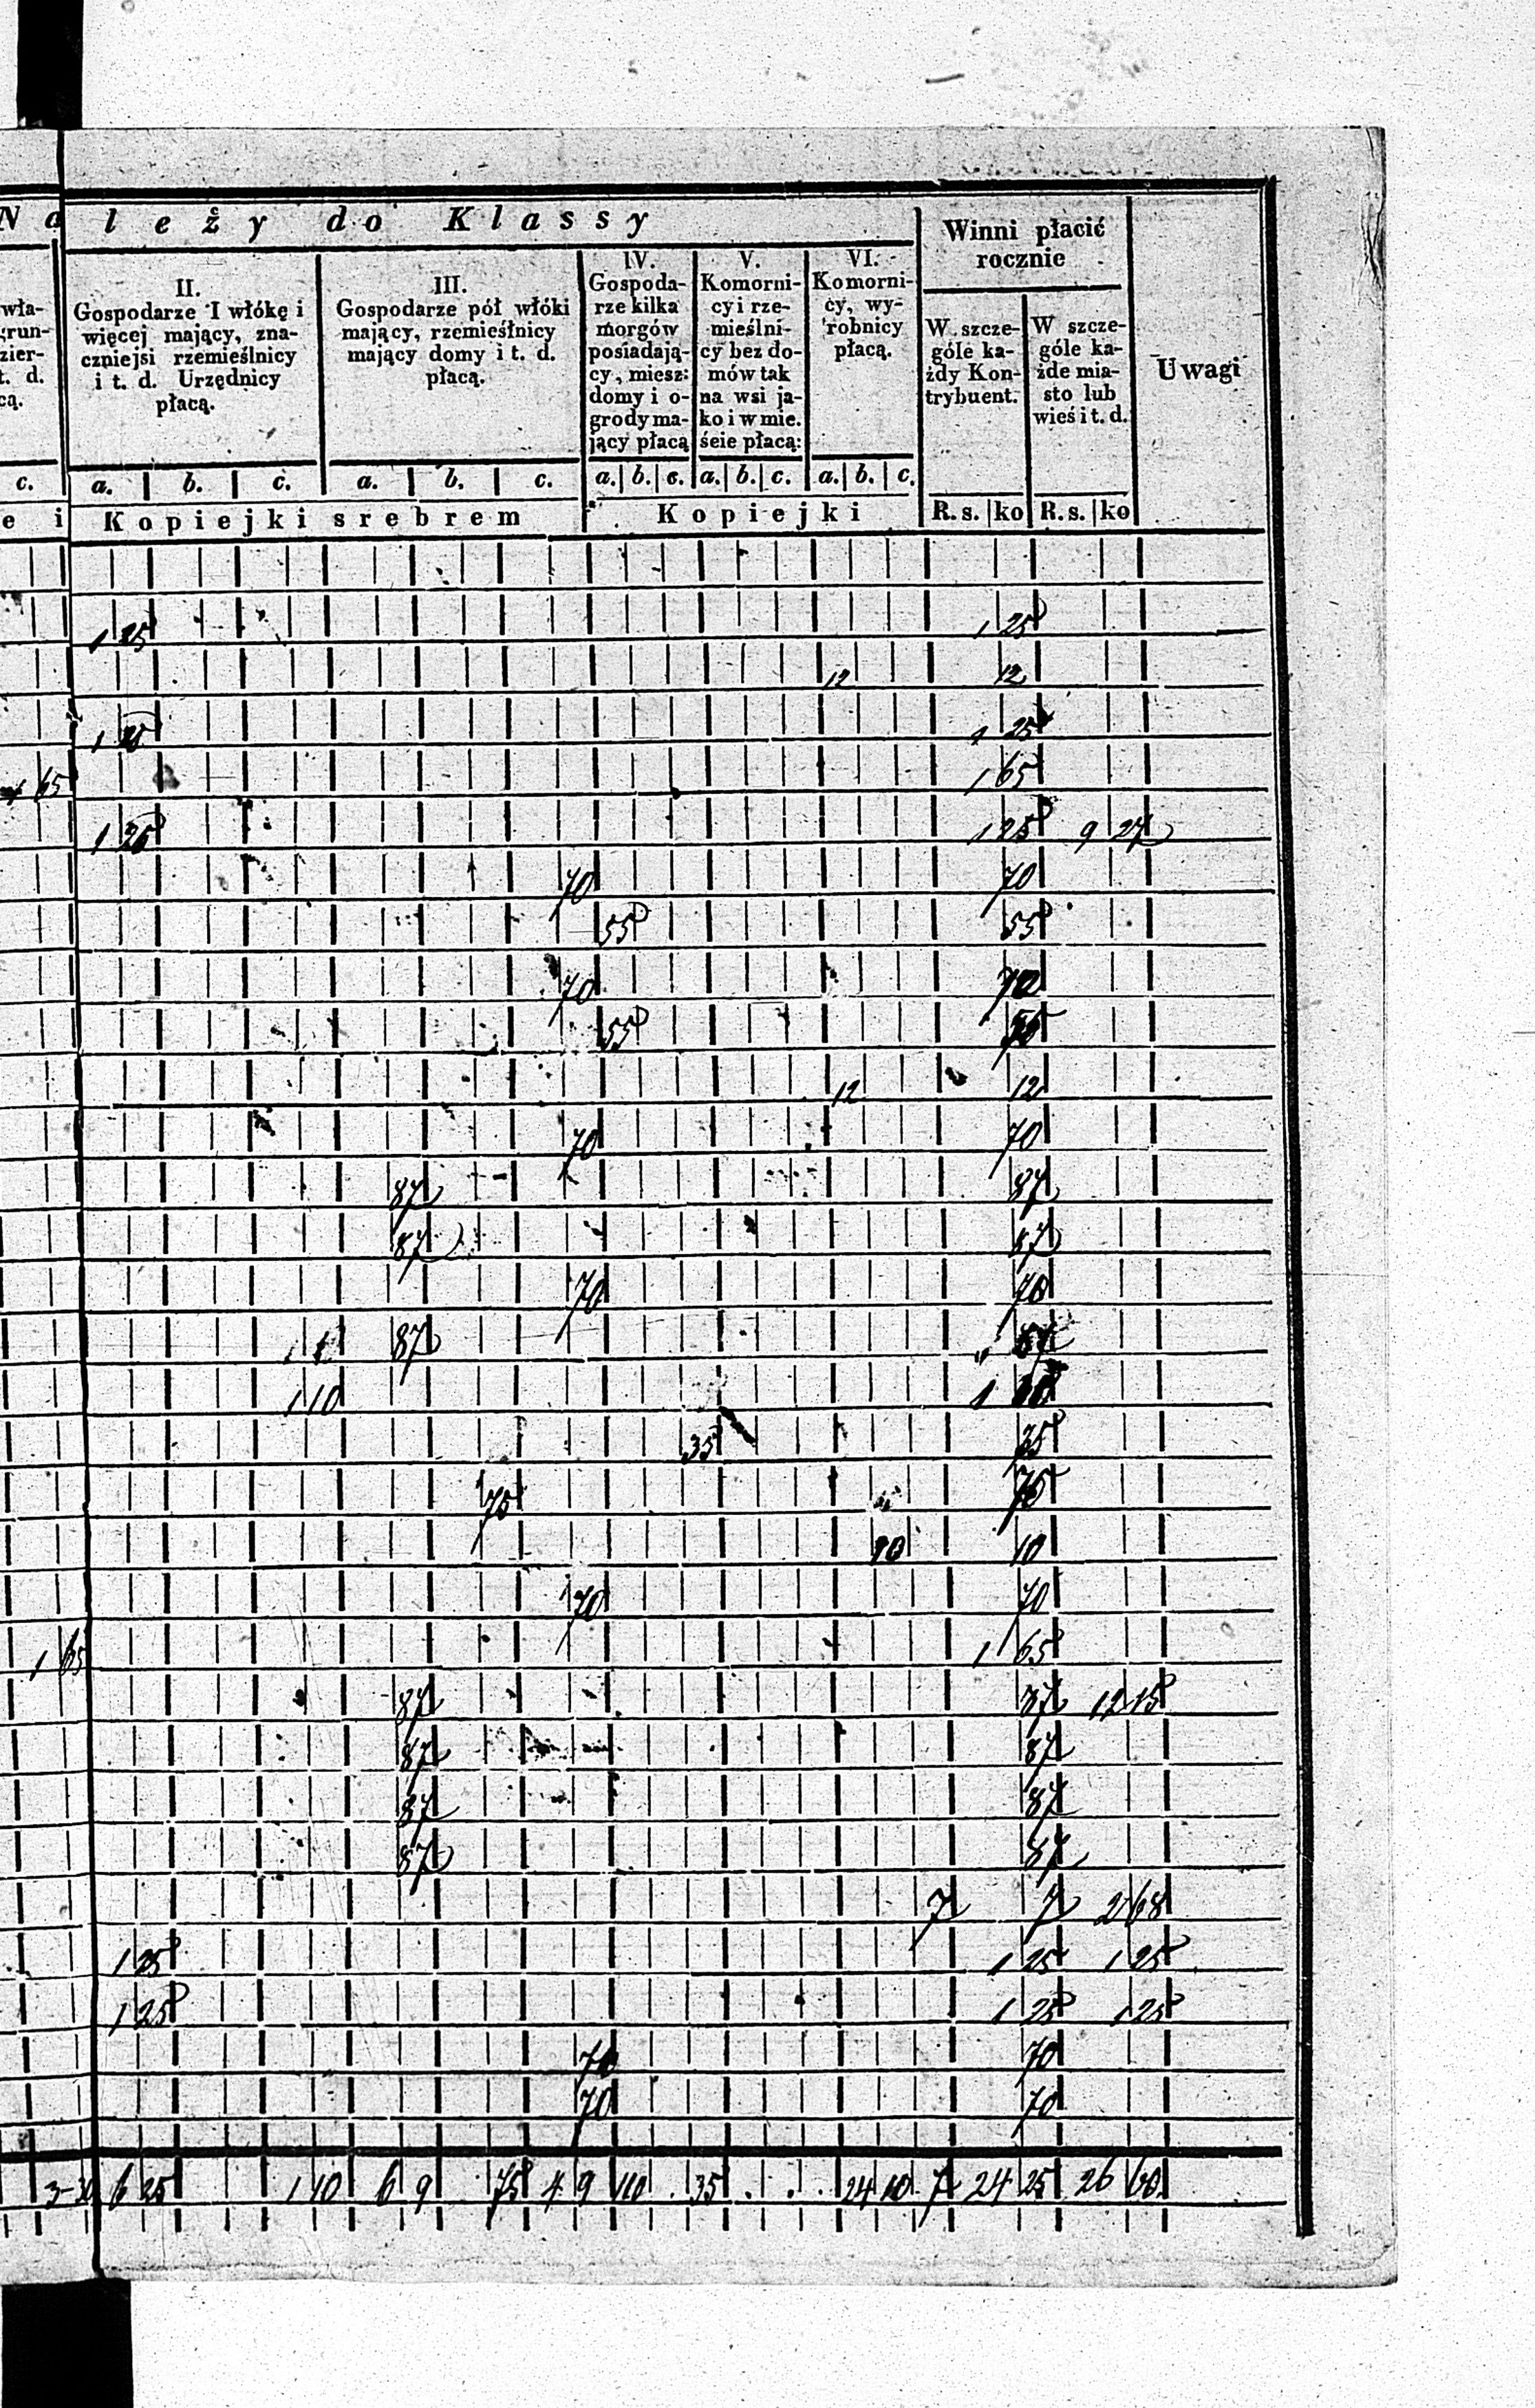 Na leży do Klassy
Winni płacić
rocznie
wła-
grun-
zier-
t. d.
cą.
II.
Gospodarze 1 włókę i
więcej mający, zna-
czniejsi rzemieślnicy
i t. d. Urzędnicy
płacą.
III.
Gospodarze pół włóki
mający, rzemieślnicy
mający domy i t. d.
płacą.
IV.
Gospoda-
rze kilka
morgów
posiadają-
cy, miesz:
domy i o-
grody ma-
jący płacą
V.
Komorni-
cy i rze-
mieślni-
cy bez do-
mów tak
na wsi ja-
ko i w mie.
ście płacą:
VI.
Komorni-
cy, wy-
robnicy
płacą.
W szcze-
góle ka-
żdy Kon-
trybuent.
W szcze-
góle ka-
żde mia-
sto lub
wieś i t. d.
Uwagi
c. a. b. c. a. b. c. a. b. c. a. b. c. a. b. c.
e i Kopiejki srebrem Kopiejki R. s. ko R. s. ko
1 25 1 25
12 12
1 25 1 25
65 1 65
1 25 1 25 9 27
70 70
55 55
70 70
55 55
12 12
70 70
87 87
87 87
70 70
87 87
1 10 1 10
35 35
75 75
10 10
70 70
1 65 1 65
87 87 12 15
87 87
87 87
87 87
7 7 2 68
1 25 1 25 1 25
1 25 1 25 1 25
70 70
70 70
3 30 6 25 1 10 6 9 75 4 9 110 35 24 10 7 24 25 26 60